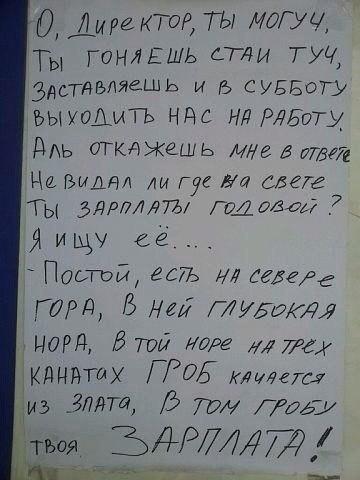 О, Директор, ты могуч,
Ты гоняешь стаи туч,
Заставляешь и в субботу
выходить нас на работу.
Аль откажешь мне в ответе
Не видал ли где на свете
Ты зарплаты годовой?
Я ищу её....
- Постой, есть на севере
гора, В ней глубокая
нора, В той норе на трёх
канатах ГРОБ качается
из злата, В том гробу
твоя ЗАРПЛАТА!